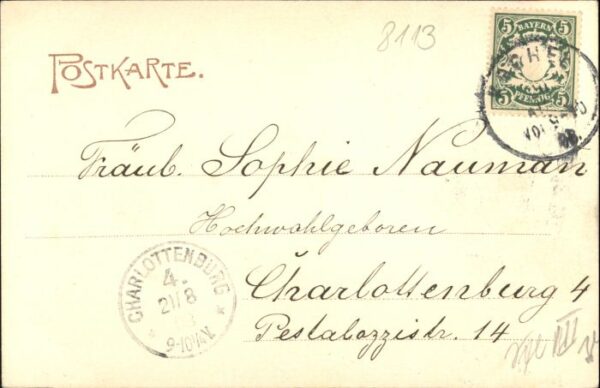 8113
POSTKARTE.
5 BAYERN 5
5 PFENNIG 5
Fräul. Sophie Nauman
Hochwohlgeboren
Charlottenburg 4
Pestalozzistr. 14
CHARLOTTENBURG
4.
21/8
9-10V.